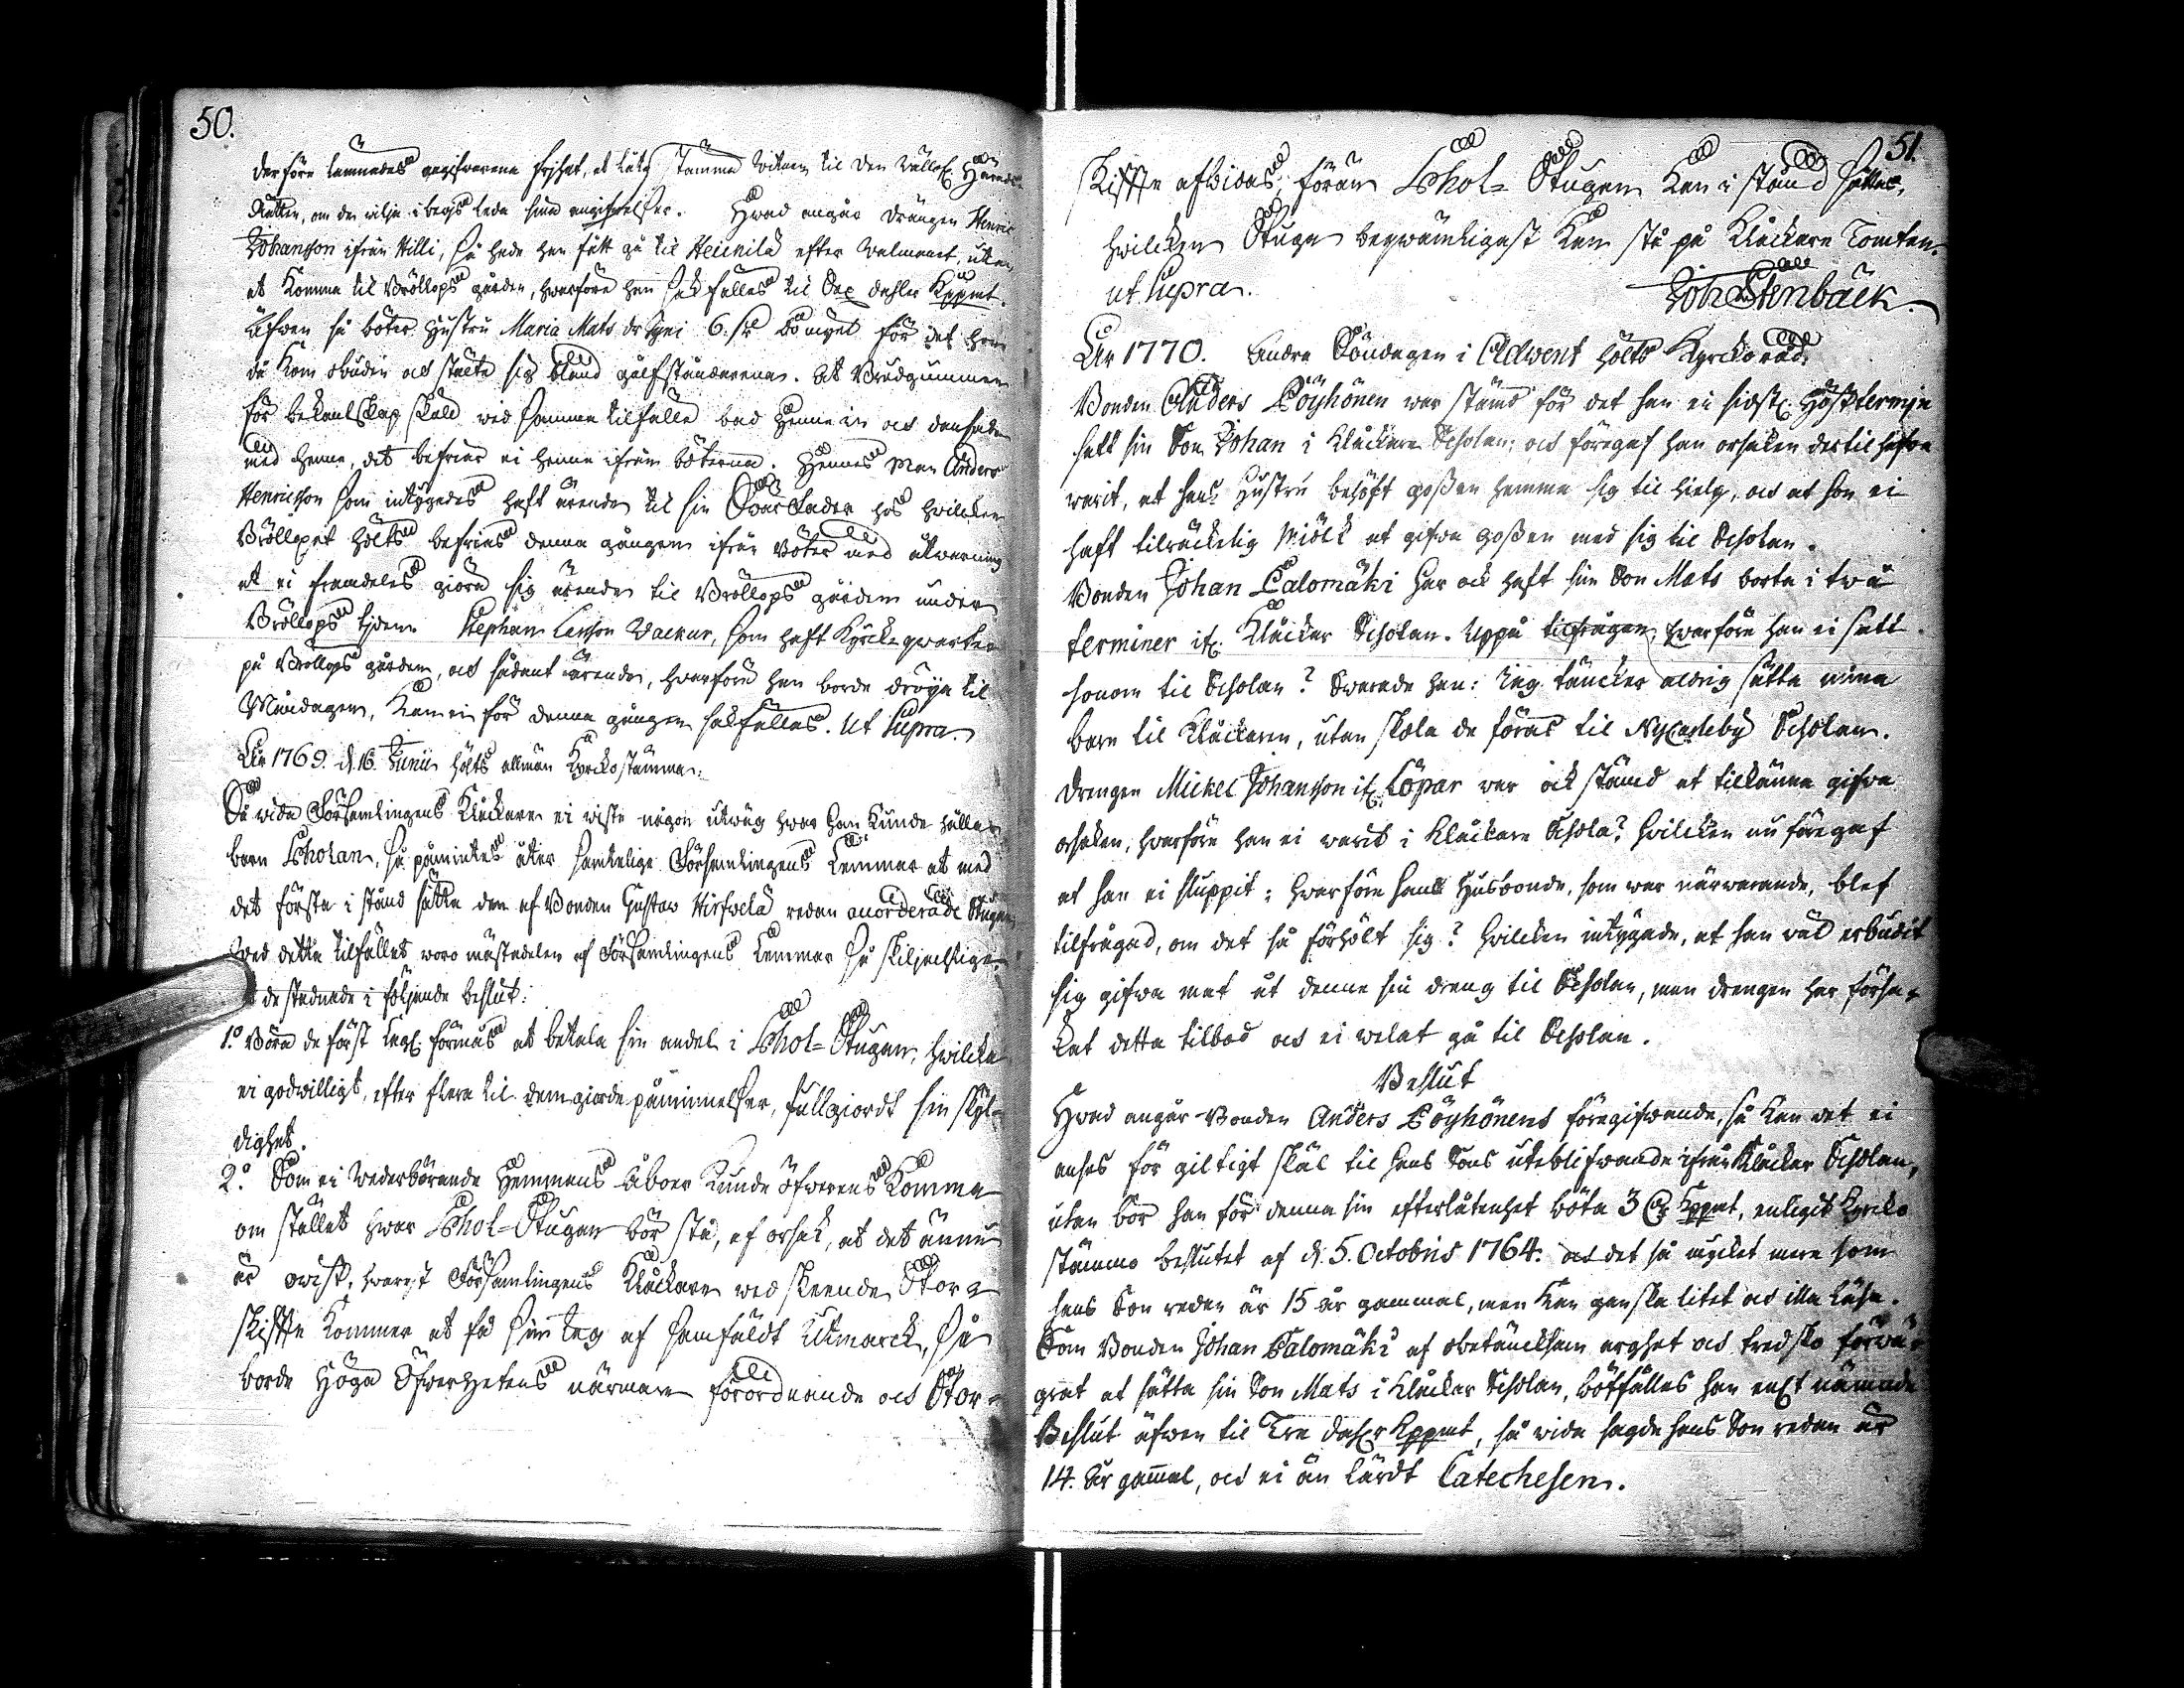 50.
derföre lemnades angifvarena frihet, at låta stämma vitnen til den välloft. Härads
Rätten, om de vilja i bevis leda sina angifvelser. Hvad angår drängen Henric
Johansson ifrån Hilli, så hade han fått gå til Heickilä efter valmanet, utan
at komma til Bröllops gården, hvarföre han sakfälles til Sex dahler Kppmt.
Äfven så böter Hustru Maria Mats dr 6 för det hon
då kom obuden och stälte sig bland gålfståndarena. At Brudgummen
för bekantskap skuld wid samma tilfälle bad henne in och dansade
med henne, det befriar ei henne ifrån böterna. Hennes Man Anders
Henricsson som intygades haft ärende til sin Svär Fader hos hvilcken
Bröllopet hölts befrias denna gången ifrån böter med åtvarning
at ei framdeles giöra sig ärende til Bröllops gården under
Bröllops tiden. Stephan Larsson Vackur, som haft Kyrcko qvarter
på Bröllops gården, och sådant ärende, hvarföre han borde dröya til
Måndagen, kan ei för denna gången sakfällas. Ut Supra.
År 1769. d. 16. Junii hölts allmän Kyrckostämma:
Så vida Församlingens Klåckare ei viste någon utväg hvar han kunde hålla
barn Scholan, så påmintes åter samtelige Församlingens Lemmar at med
det första i stånd sätta den af Bonden Gustaw Hirfvelä redan anorderade Stugan
Wed detta tilfället woro mästadelen af Församlingens Lemmar så skiljachtige
de stadnade i följande beslut:
1:o Böra de först förmås at betala sin andel i Schol-Stugan, hvilcka
ei godwilligt, efter flera til dem giorde påminnelser, fullgiordt sin skyl-
dighet.
2:o Som ei wederbörande Hemmans Åboer kunde öfverens komma
om stället hvar Schol-Stugan bör stå, af orsak, at det ännu
är ovist, hvarest Församlingens Klåckare wed skeende Stor-
skiffte kommer at få sin teg af samfäldt Utmarck, så
borde Höga Öfwerhetens närmare förordnande och Stor-
51.
Skiffte afbidas, föran Schol-Stugan kan i stånd sättas,
hvilcken Stuga beqvämligast kan stå på Klåckare Tomten.
ut Supra.
Joh: Stenbäck.
År 1770. Andra Söndagen i Advent hölts Kyrckoråd.
Bonden Anders Pöyhönen war stämd för det han ei sidstl. Hösttermin
satt sin Son Johan i Klåckare Scholan; och föregaf han orsaken dertil hafva
varit, at hans Hustru behöft gossen hemma sig til hielp, och at hon ei
haft tilräckelig miölck at gifva gossen med sig til Scholan.
Bonden Johan Palomäki har ock haft sin Son Mats borta i två
terminer if. Klåckar Scholan. Uppå tilfrågan, hvarföre han ei satt
honom til Scholan? Svarade han: Jag täncker aldrig sätta mina
barn til Klåckaren, utan skola de föras til NyCarleby Scholan.
Drengen Mickel Johansson if. Löpar war ock stämd at tillkänna gifva
orsaken, hvarföre han ei varit i Klåckare Schola? Hvilcken nu föregaf
at han ei sluppit; hvarföre hans Husbonde, som war närwarande, blef
tilfrågad, om det så förhölt sig? Hvilcken intygade, at han väl erbudit
sig gifva mat åt denne sin dreng til Scholan, men drengen har försa-
kat detta tilbod och ei velat gå til Scholan.
Beslut
Hvad angår Bonden Anders Pöyhönens föregifvande, så kan det ei
anses för giltigt skäl til hans Sons uteblifvande ifrån Klåckar Scholan,
utan bör han för denna sin efterlåtenhet böta 3 Kppmt, enligit Kyrcko
stämmo beslutet af d. 5. Octobris 1764. och det så mycket mera som
hans Son redan är 15 år gammal, men kan ganska litet och illa läsa.
Som Bonden Johan Palomäki af obetäncksam arghet och tredsko förvä-
grat at sätta sin Son Mats i Klåckar Scholan, bötfälles han enl. nämnde
Beslut äfwen til Tre Dahler Kppmt, så vida sagde hans Son redan är
14. år gammal, och ei än lärdt Catechesen.